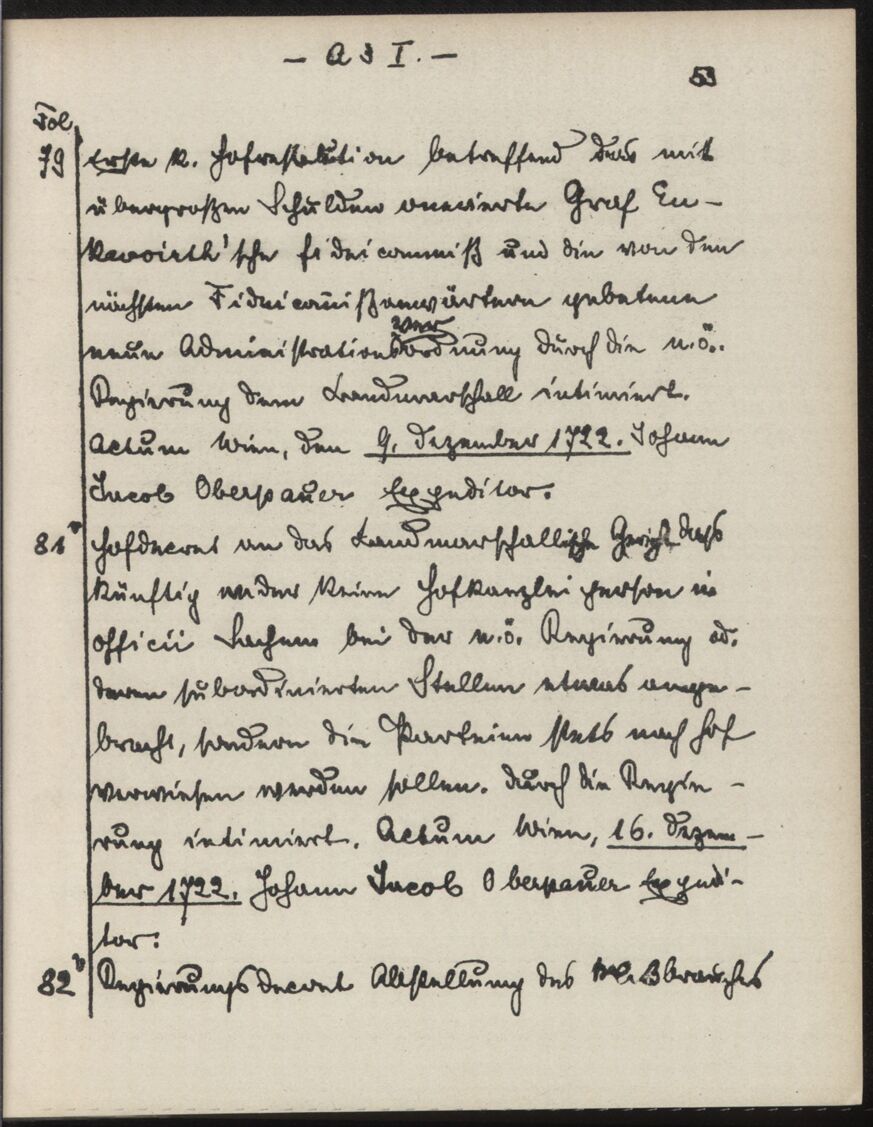 - A 3 I. -
53
Fol.
79 Erste k. Hofresolution betreffend das mit
übergroßen Schulden onerierte Graf En-
kevoirth'sche Fideicommiß und die von den
nächsten Fideicom̄ißanwärtern gebetene
neue Administrationsverordnung durch die n.ö.
Regierung dem Landmarschall intimiert.
Actum Wien, den 9. Dezember 1722. Johann
Jacob Oberpauer Expeditor.
81v Hofdecret an das Landmarschallische Gericht dass
künftig weder keine Hofkanzleiperson in
officii Sachen bei der n.ö. Regierung od.
deren subordinierten Stellen etwas ange-
bracht, sondern die Parteien stets nach Hof
verwiesen werden sollen. Durch die Regie-
rung intimiert. Actum Wien, 16. Dezem-
ber 1722. Johann Jacob Oberpauer Expedi-
tor.
82v Regierungsdecret Abstellung des Mißbrauches